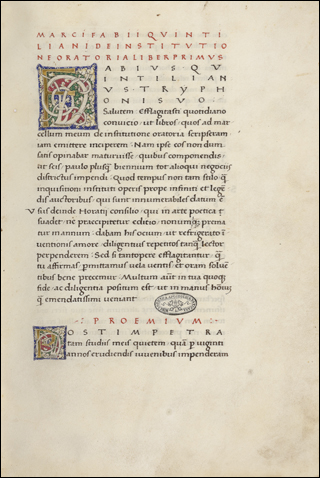 MARCI FABII QUINTI
LIANI DE INSTITUTIO
NE ORATORIA LIBER PRIMUS
FABIUS QU
INTILIAN
US TRYPH
ONI SUO
Salutem · Efflagitasti quotidiano
convicio · ut libros · quos ad mar
cellum meum de institutione oratoria scripseram
iam emittere inciperem · Nam ipse eos non dum
satis opinabar maturuisse · quibus componendis
ut scis · paulo plusq̃ biennium tot alioqui negociis
districtus impendi · Quod tempus non tam stilo q̃
inquisitioni instituti operis prope infiniti et legẽ
dis auctoribus · qui sunt innumerabiles datum ẽ
Vsus deinde Horatii consilio · qui in arte poetica
suadet · ne praecipitetur editio · nonumq; prema
tur in annum · dabam his ocium · ut refrigerato ĩ
ventionis amore · diligentius repetitos tanq̃ lector
perpenderem · Sed si tantopere efflagitantur · q̃
tu affirmas · pmittamus vela ventis · et oram solvẽ
tibus bene precemur · Multum aũt in tua quoq;
fide · ac diligentia positum est · ut in manus hoĩuʒ
q̃ emendatissimi veniant
PROEMIUM
POST IMPETRA
tam studiis meis quietem · quã p viginti
annos erudiendis iuvenibus impenderam